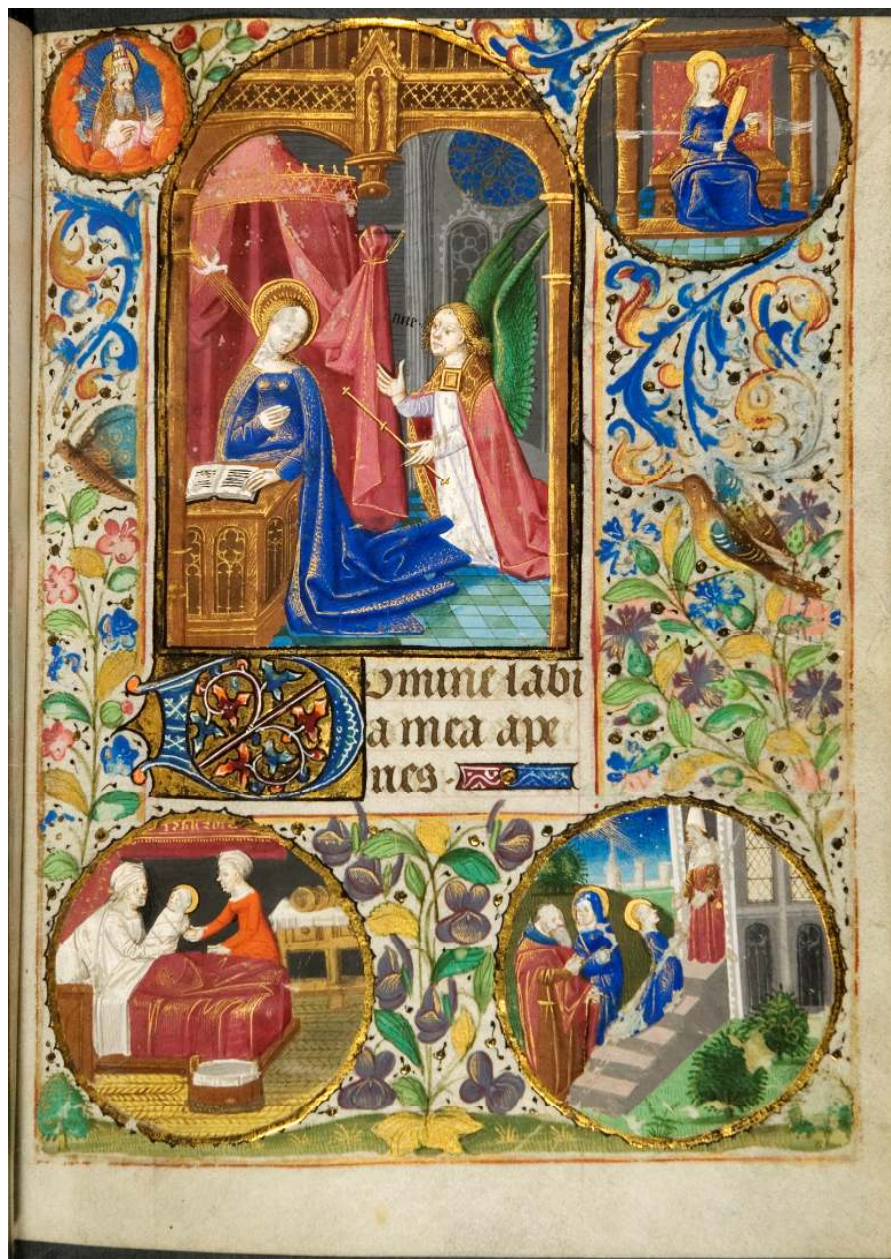 Domine labi
a mea ape
ries